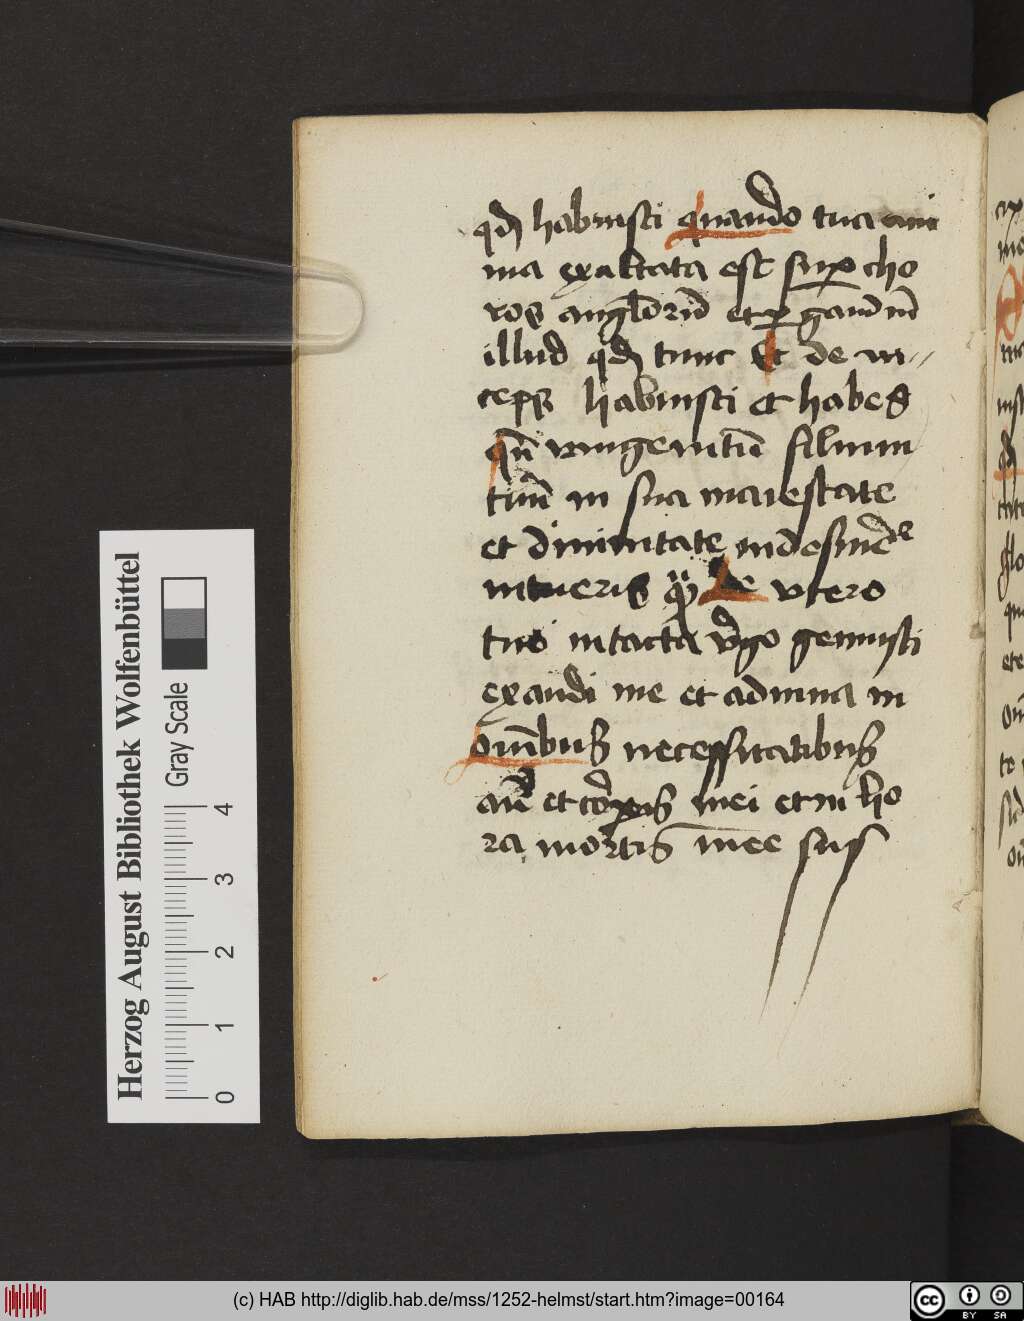 qd habuisti quando tua ani
ma exaltata est sup cho
ros angelorū et p gaudiū
illud qd tunc Et de in
ceps habuisti et habes
qn vnigenitū filium
tuū in sua maiestate
et diuinitate indesinēte
intueris De vtero
tuo intacta vgo genuisti
exaudi me et adiuua in
omībus necessitatibus
aīe et corporis mei et in ho
ra mortis mee
Herzog August Bibliothek Wolfenbüttel
Gray Scale
0 1 2 3 4
(c) HAB http://diglib.hab.de/mss/1252-helmst/start.htm?image=00164
cc BY SA